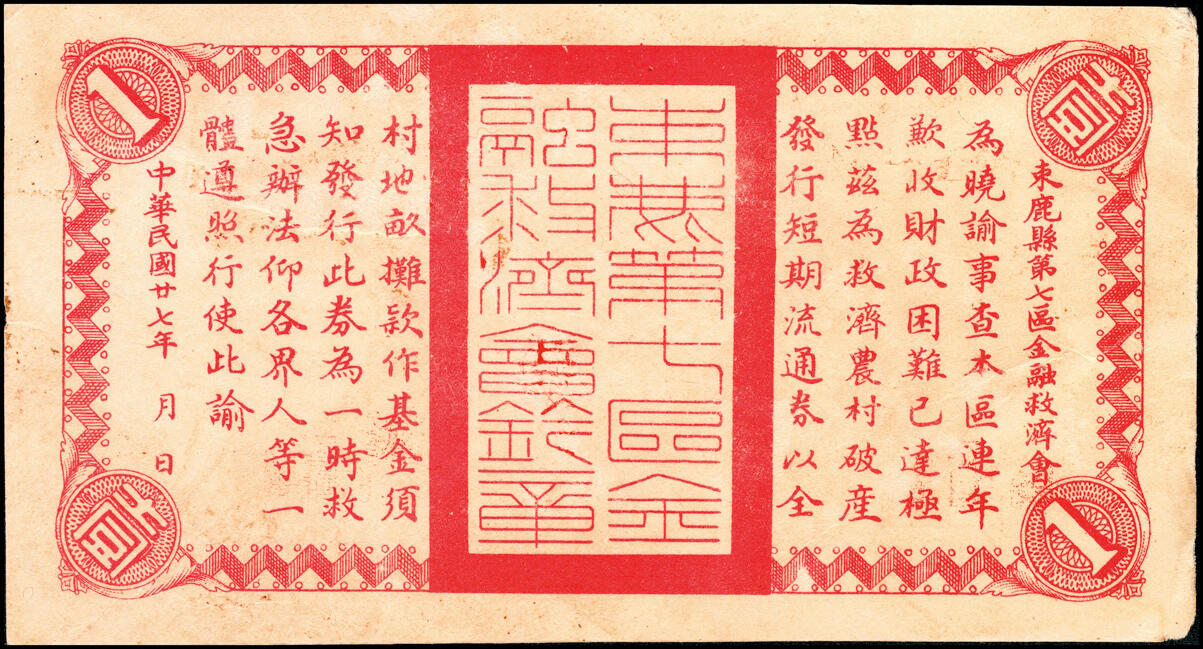 1
束鹿縣第七區金融救濟會
為曉諭事查本區連年
歉收財政困難已達極
點茲為救濟農村破產
發行短期流通券以全
束鹿第七區金
融救濟會鈐章
村地畝攤款作基金須
知發行此券為一時救
急辦法仰各界人等一
體遵照行使此諭
中華民國廿七年 月 日
1